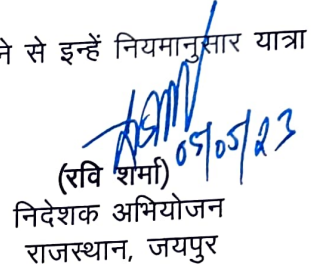 ने से इन्हें नियमानुसार यात्रा
05/05/23
(रवि शर्मा)
निदेशक अभियोजन
राजस्थान, जयपुर